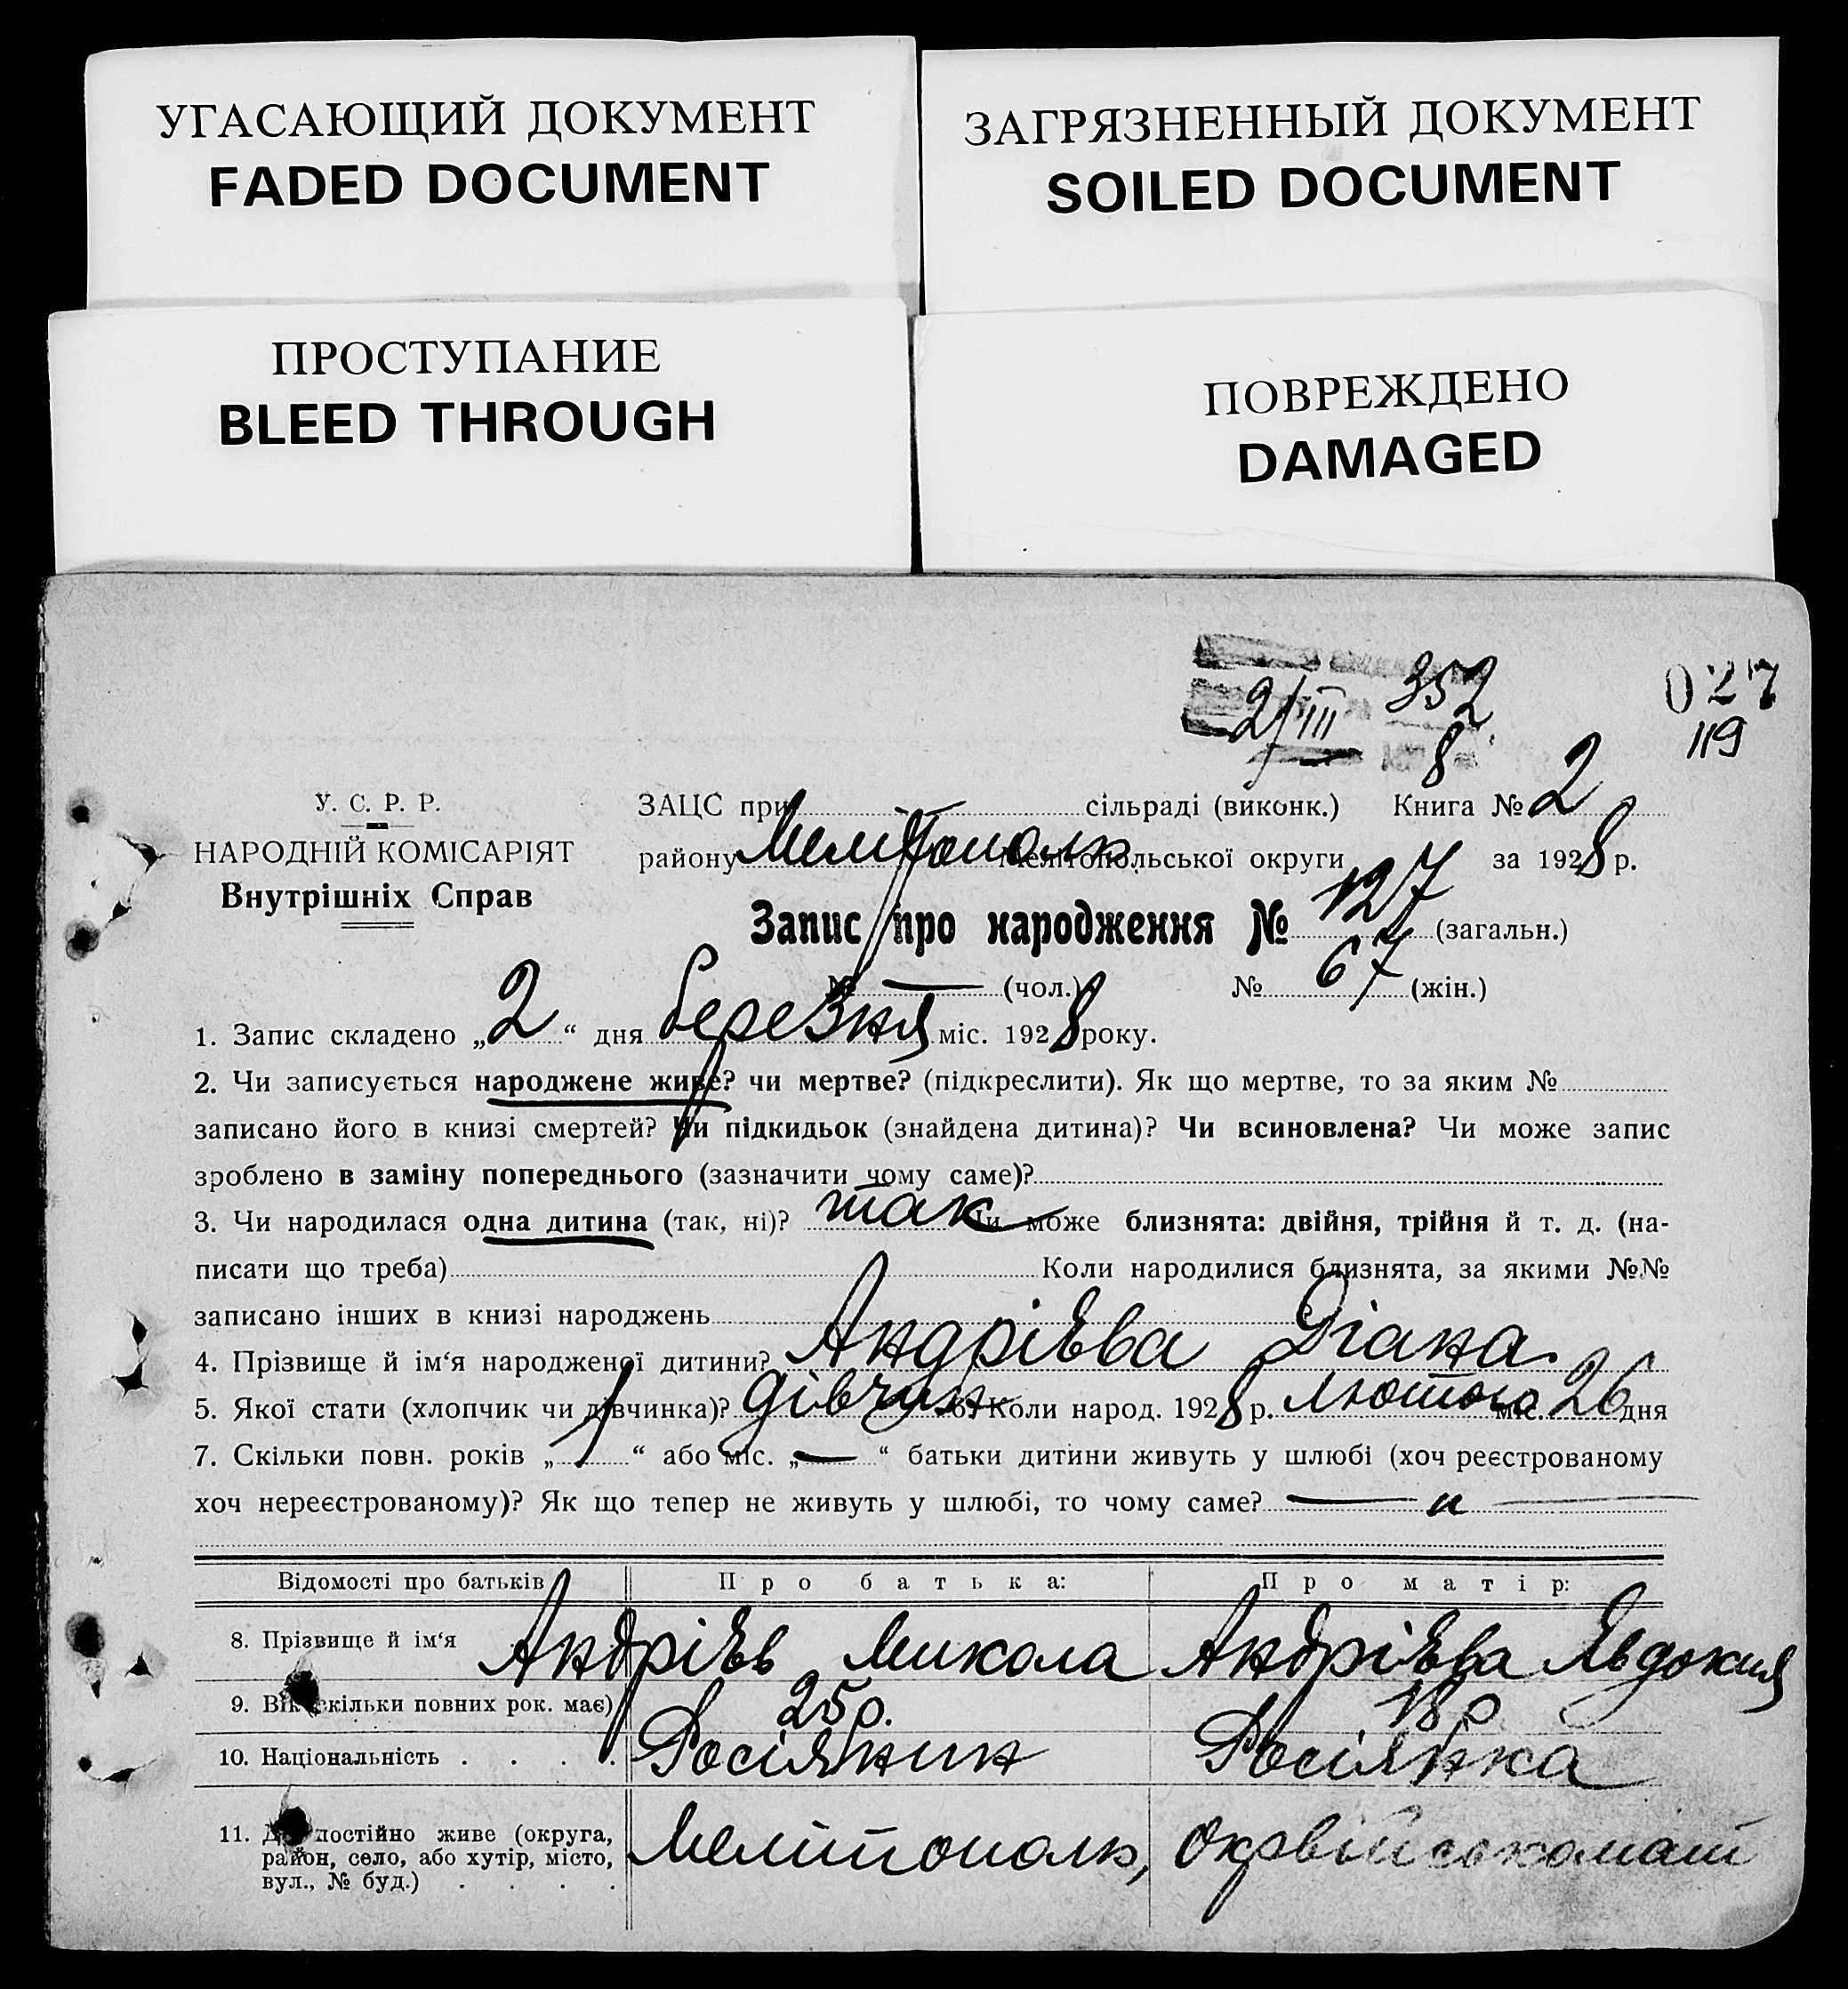 УГАСАЮЩИЙ ДОКУМЕНТ
FADED DOCUMENT
ЗАГРЯЗНЕННЫЙ ДОКУМЕНТ
SOILED DOCUMENT
ПРОСТУПАНИЕ
BLEED THROUGH
ПОВРЕЖДЕНО
DAMAGED
027
2/III 352
119
8
У. С. Р. Р.
НАРОДНІЙ КОМІСАРІЯТ
Внутрішніх Справ
ЗАЦС при — сільраді (виконк.) Книга № 2
району Мелітополь Мелітопольської округи за 1928 р.
Запис про народження № 127 (загальн.)
№ — (чол.) № 67 (жін.)
1. Запис складено „2“ дня березня міс. 1928 року.
2. Чи записується народжене живе? чи мертве? (підкреслити). Як що мертве, то за яким №
записано його в книзі смертей? Чи підкидьок (знайдена дитина)? Чи всиновлена? Чи може запис
зроблено в заміну попереднього (зазначити чому саме)?
3. Чи народилася одна дитина (так, ні)? так Чи може близнята: двійня, трійня й т. д. (на-
писати що треба) Коли народилися близнята, за якими №№
записано інших в книзі народжень
4. Прізвище й ім‘я народженої дитини? Андрієва Діана
5. Якої стати (хлопчик чи дівчинка)? дівчин 6. Коли народ. 1928 р. лютого міс. 26 дня
7. Скільки повн. років „1“ або міс. „—“ батьки дитини живуть у шлюбі (хоч реєстрованому
хоч нереєстрованому)? Як що тепер не живуть у шлюбі, то чому саме? — „ —
Відомості про батьків Про батька: Про матір:
8. Прізвище й ім‘я Андрієв Микола Андрієва Явдокия
9. Вік (скільки повних рок. має) 25 р. 18 р
10. Національність . . . . Росіянин Росіянка
11. Де постійно живе (округа,
район, село, або хутір, місто,
вул., № буд.) . . . .
Мелітополь, Окрвійськомат